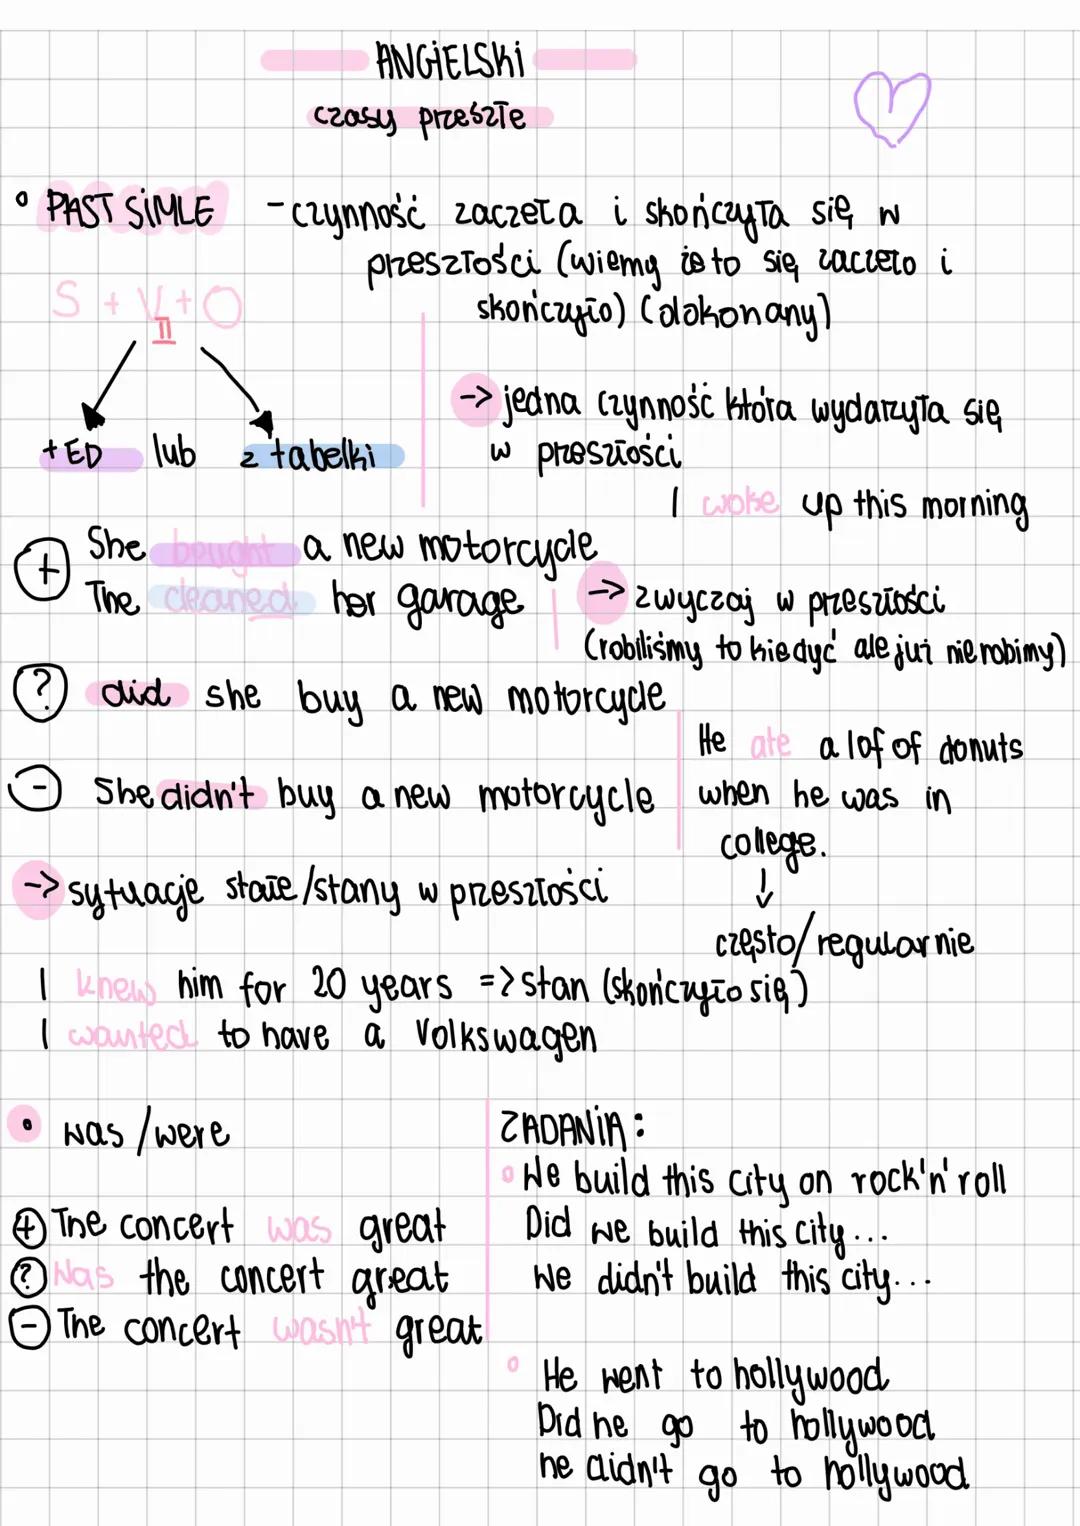 ANGIELSKI
czasy przeszłe
• PAST SIMLE - czynność zaczeła i skończyła się w
przeszłości (wiemy że to się zaczeło i
skończyło) (dokonany)
S + V + O
II
+ED lub z tabelki
-> jedna czynność która wydarzyła się
w przeszłości
I woke up this morning
+ She bought a new motorcycle
The cleaned her garage
-> zwyczaj w przeszłości
(robiliśmy to kiedyć ale już nie robimy)
? did she buy a new motorcycle
- She didn't buy a new motorcycle
He ate a lof of donuts
when he was in
college.
↓
często/regularnie
-> sytuacje stałe/stany w przeszłości
I knew him for 20 years => stan (skończyło się)
I wanted to have a Volkswagen
• was/were
+ The concert was great
? Was the concert great
- The concert wasn't great
ZADANIA:
• We build this city on rock'n'roll
Did we build this city...
We didn't build this city...
• He went to hollywood
Did he go to hollywood
he didn't go to hollywood